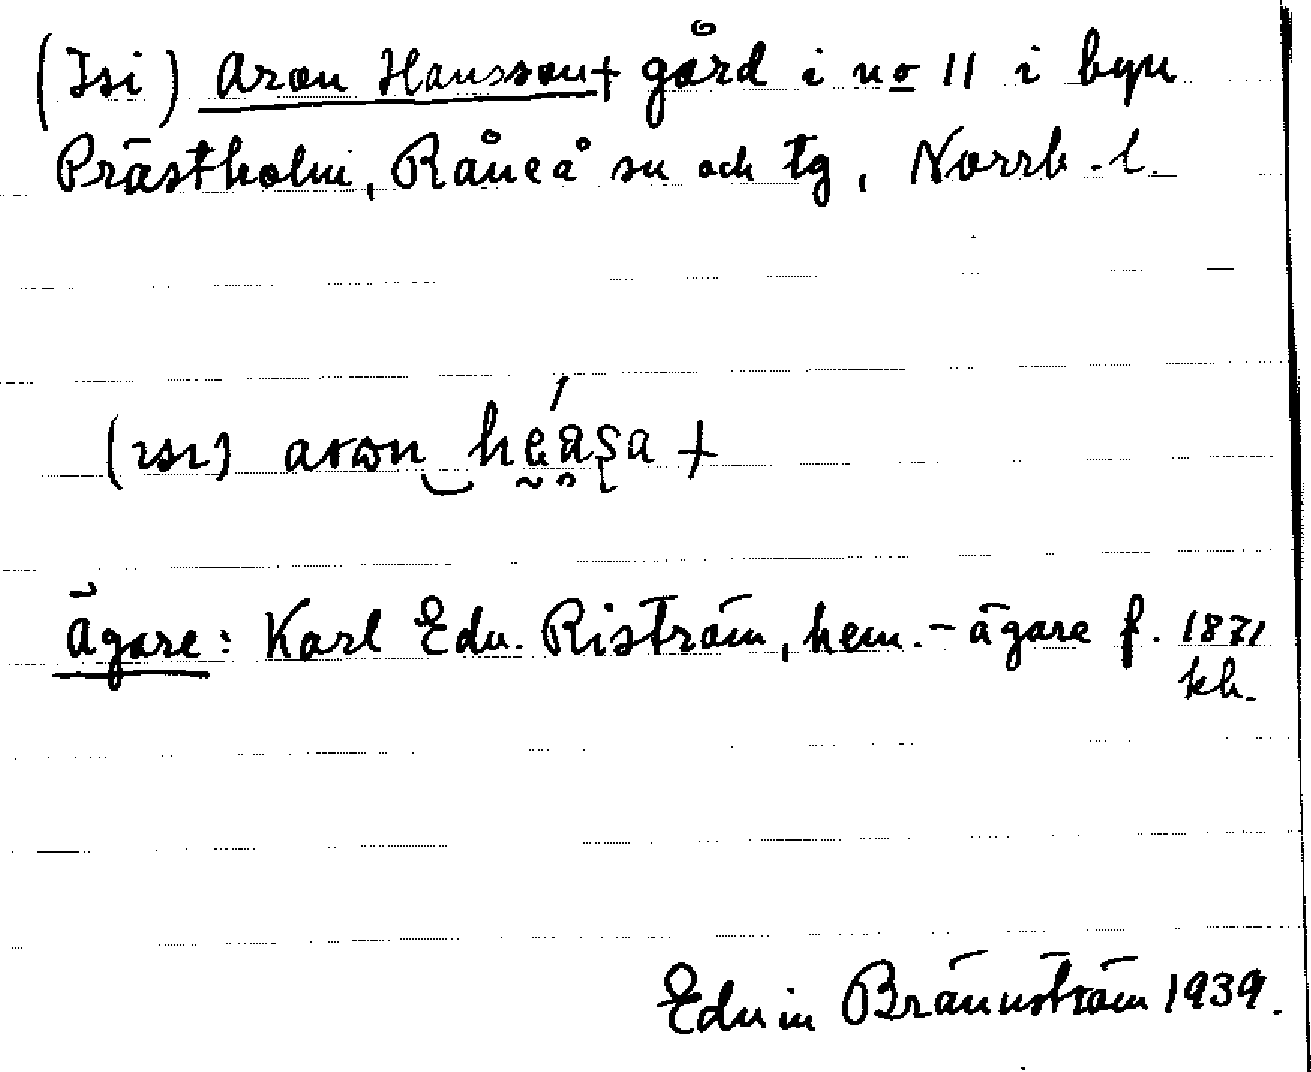 (Isi) Aron Hansson+ gård i no 11 i byn
Prästholm, Råneå sn och tg, Norrb. l.
(ısı) aron‿heása +
Ägare: Karl Edv. Riström, hem.-ägare f. 1871
kh.
Edvin Brännström 1939.